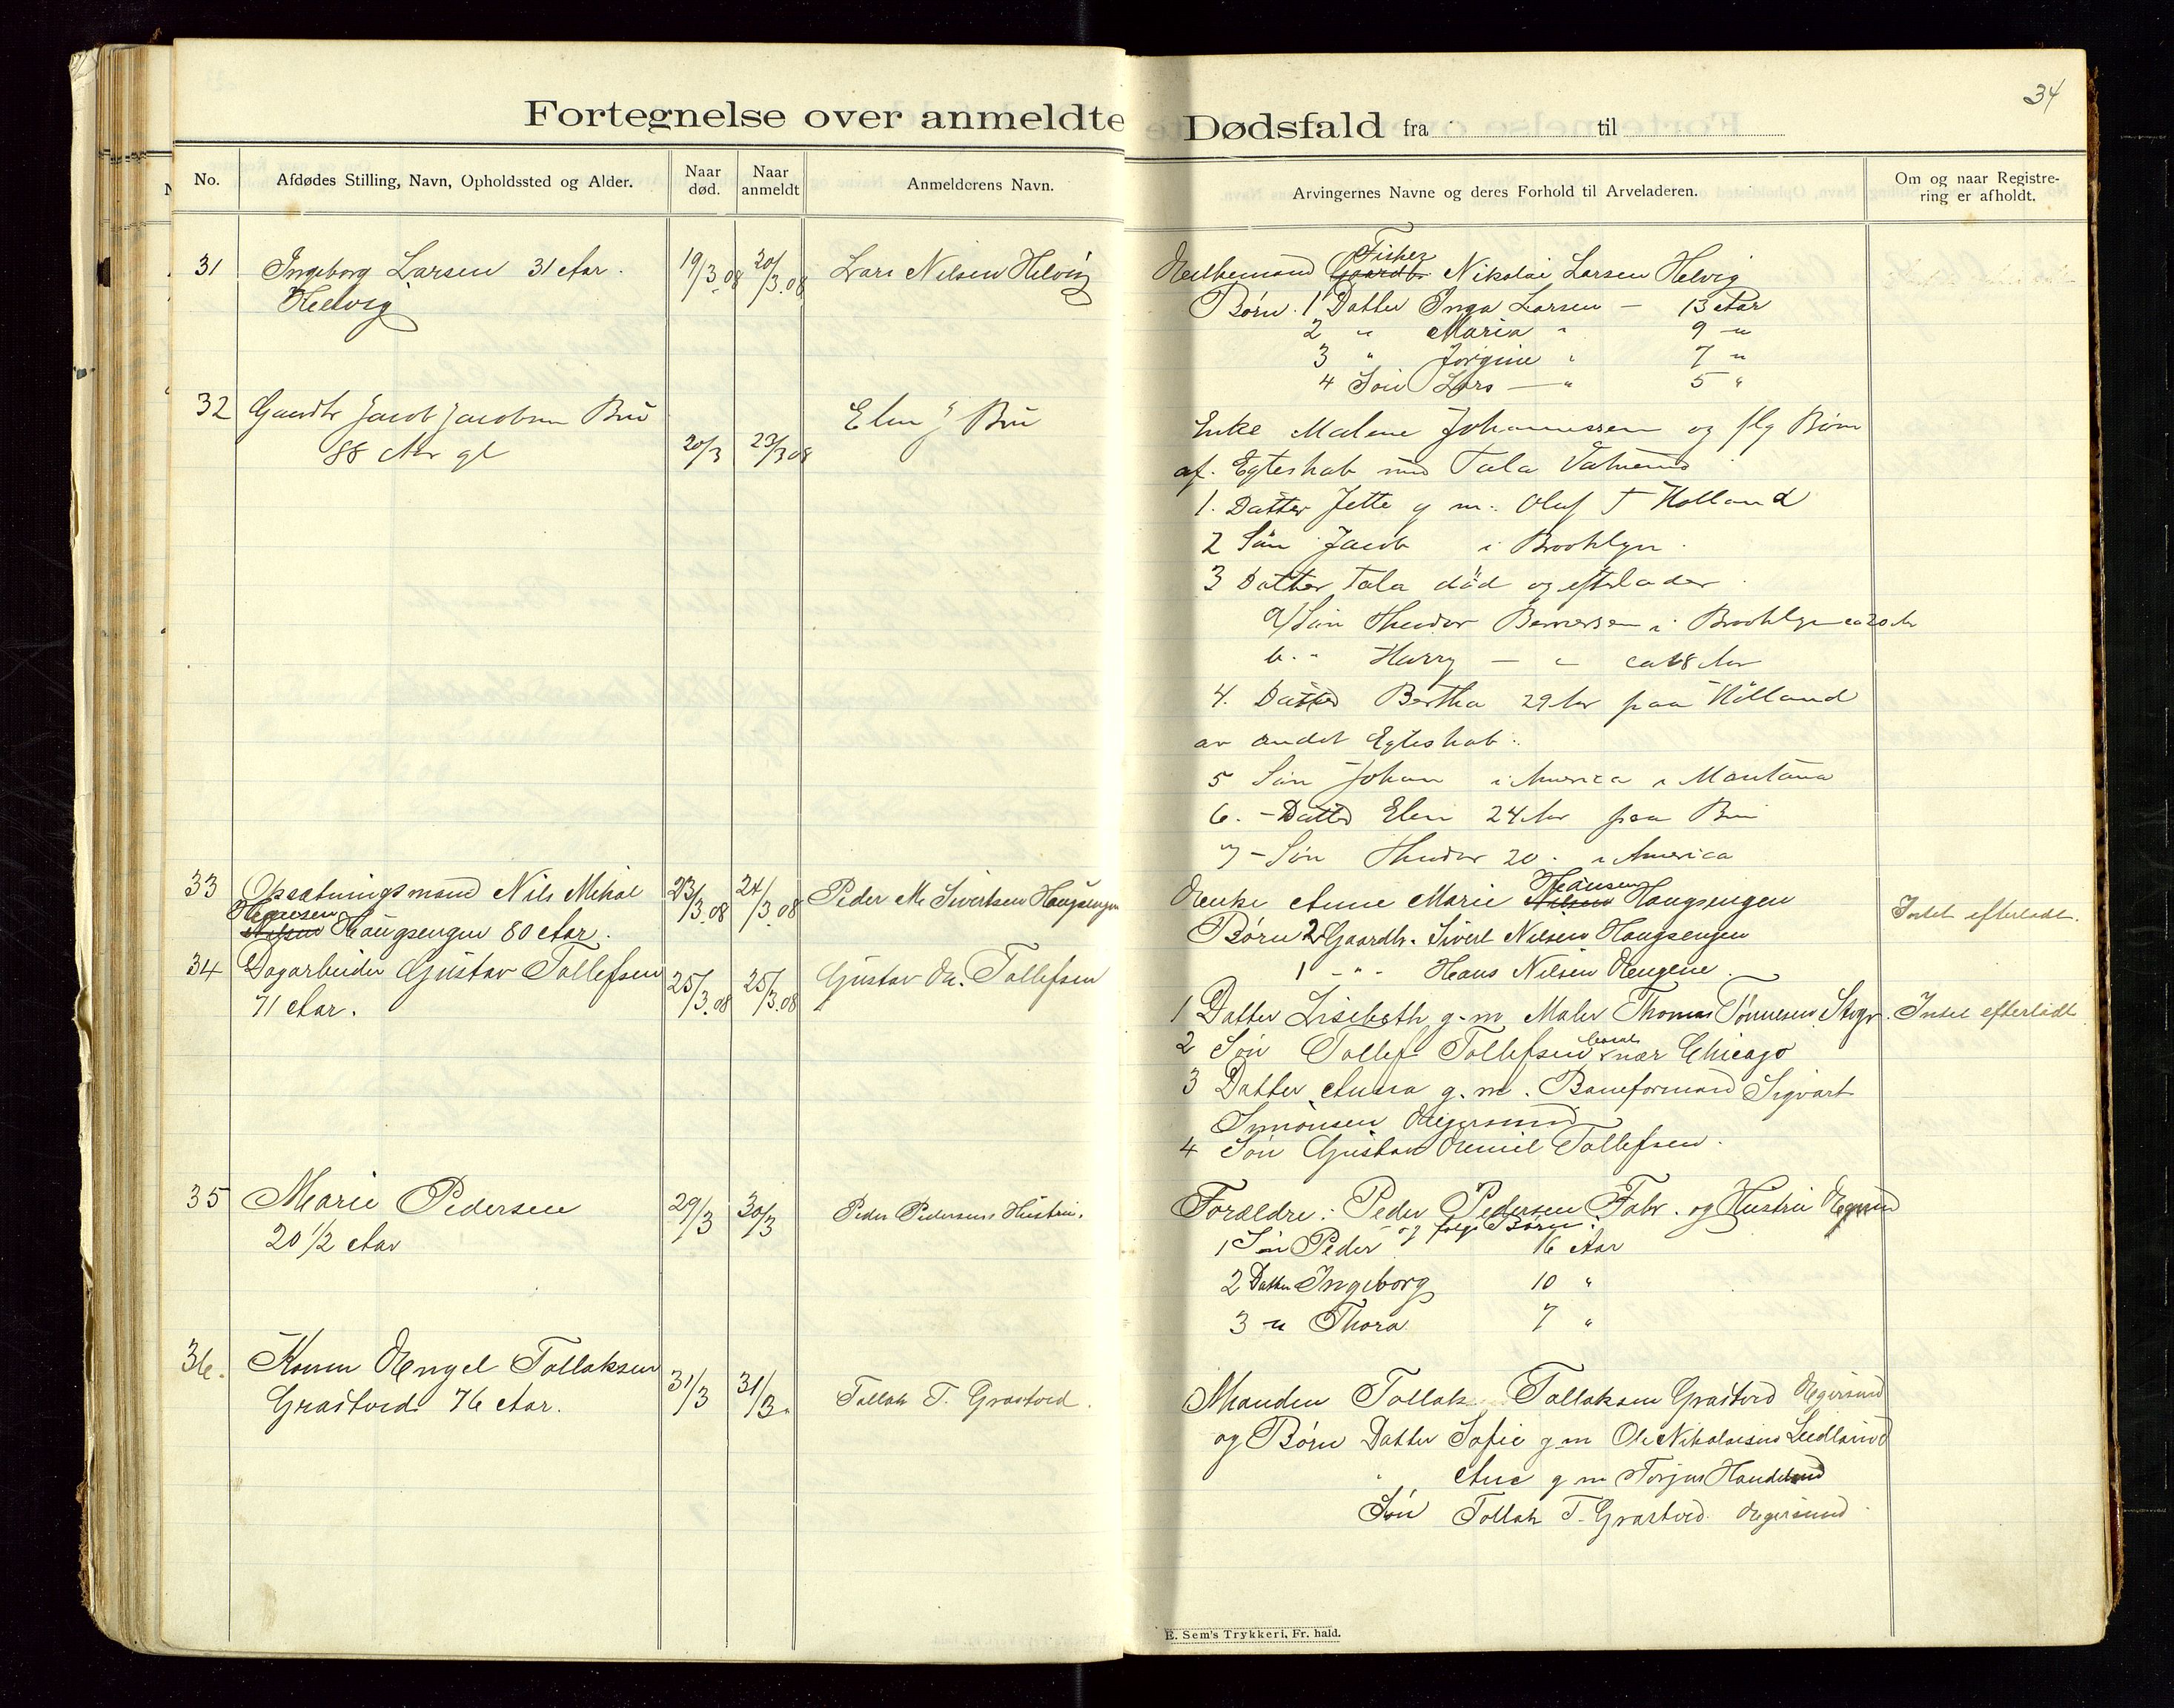 34
Fortegnelse over anmeldte Dødsfald fra til
No.
Afdødes Stilling, Navn, Opholdssted og Alder.
Naar død.
Naar anmeldt
Anmelderens Navn.
Arvingernes Navne og deres Forhold til Arveladeren.
Om og naar Registre-
ring er afholdt.
31 Ingeborg Larsen 31 Aar. 19/3.08 20/3.08 Lars Nilsen Helvig
Helvig
Fisker
Nikolai Larsen Helvig
Børn. 1 Datter Inga Larsen – 13 Aar
2 " Maria " 9 "
3 " Jorgine " 7 "
4 Søn Lars — " 5 "
32 Gaardbr Jacob Jacobsen Bru 20/3 23/3 08 Elen J Bru
88 Aar gl
Enke Malene Johannessen og flg Børn
af. Egteskab med Tala
1. Datter Jette g m. Oluf T Holland
2 Søn Jacob i Brooklyn.
3 Datter Tala död og efterlader
a/ Søn Theodor i Brooklyn ca 20 Ar
b. " Harry — " ca 18 Ar
4. Datter Bertha 29 Ar paa Holland
av andet Egteskab.
5 Søn Johan i America i Montana
6. – Datter Elen 24 Ar paa Bru
7 – Søn Theodor 20. i America
33 Opsætningsmand Nils Mikal 23/3.08 24/3.08 Peder M Sivertsen Haugsengen
Hansen
Nilsen Haugsengen 80 Aar.
Hansen
Enke Anne Marie Nilsen Haugsengen
Børn 2 Gaardb. Sivert Nilsen Haugsengen
1 – " – Hans Nilsen
Intet efterladt.
34 Dagarbeider Gustav Tollefsen 25/3.08 25/3.08 Gustav Em. Tollefsen
71 Aar.
1 Datter Lisebeth g. m Maler Thomas Tønnesen Stvgr. Intet efterladt
2 Søn Tollef Tollefsen nær Chicago
3 Datter Anna g. m. Baneformand Sigvart
Simonsen Egersund
4 Søn Gustav Emil Tollefsen.
35 Marie Pedersen 29/3 30/3 Peder Pedersens Hustru.
20 1/2 Aar
Forældre: Peder Pedersen Fabr. og Hustru Egersund
og følg. Børn:
1 Søn Peder 16 Aar
2 Datter Ingeborg 10 "
3 " Thora 7 "
36. Konen Engel Tollaksen 31/3 31/3. Tollak T. Grastveid.
Grastveid 76 Aar.
Manden Tollak Tollaksen Grastveid Egersund
og Børn Datter Sofie g m Ole Nikolaisen Leidland
" Ane g m Torjus Handeland
Søn Tollak T. Grastveid. Egersund
E. Sem's Trykkeri, Fr. hald.